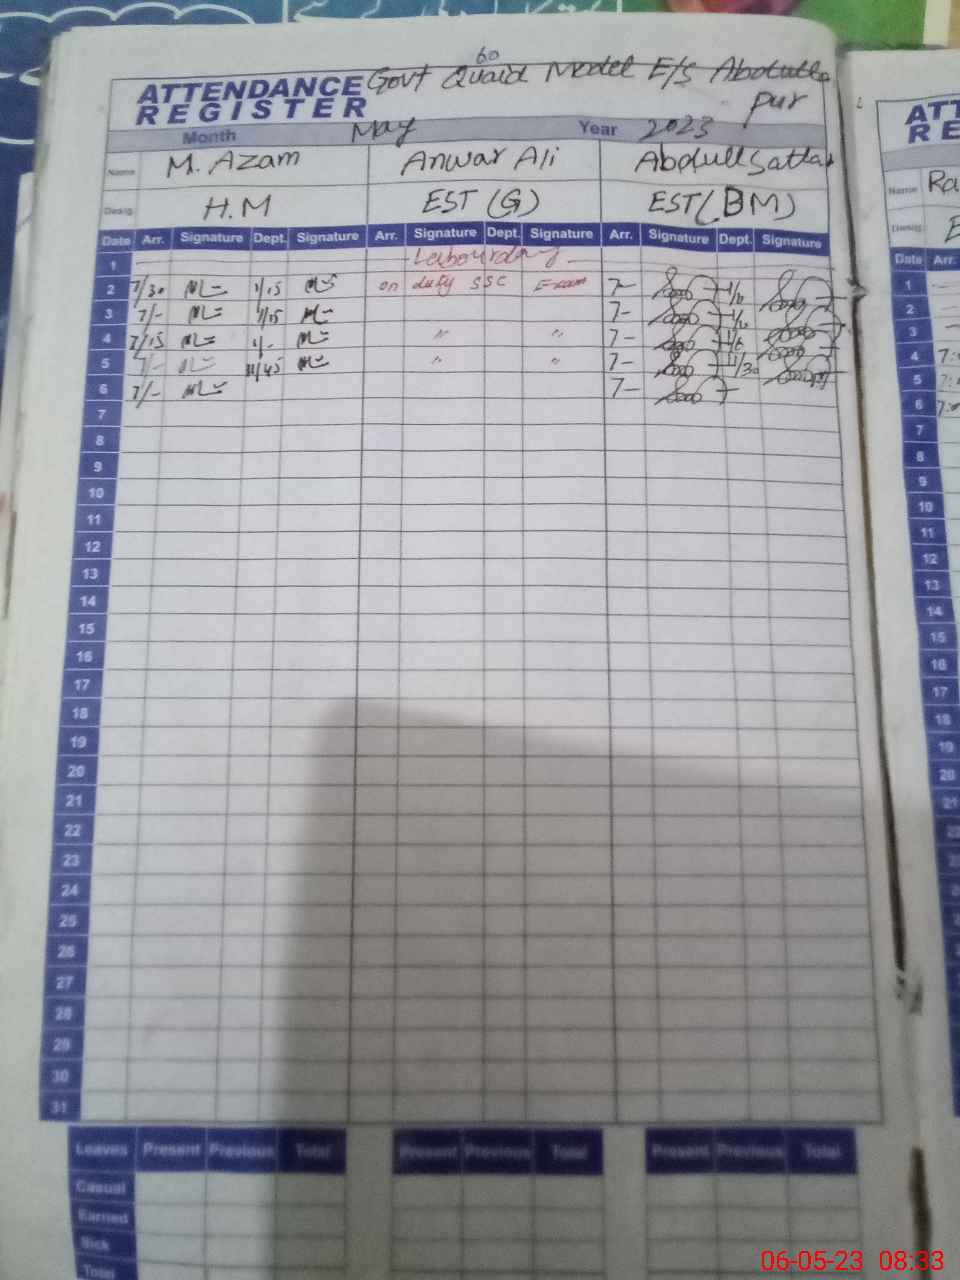 60
Govt Quaid Model E/S Abdulla
pur
ATTENDANCE
REGISTER
Month May Year 2023
Name M. Azam Anwar Ali Abdull Sattar
Desig. H.M EST (G) EST (BM)
Date Arr. Signature Dept. Signature Arr. Signature Dept. Signature Arr. Signature Dept. Signature
1 Labour day
2 7/30 1/15 on duty SSC Exam 7-
3 7/- 1/15 7-
4 7/15 1/- " " 7-
5 7/- 11/45 " " 7- 11/30
6 7/- 7-
7
8
9
10
11
12
13
14
15
16
17
18
19
20
21
22
23
24
25
26
27
28
29
30
31
Leaves Present Previous Total Present Previous Total Present Previous Total
Casual
Earned
Sick
Total
ATT
RE
Name Ra
Desig.
Date Arr.
1
2
3
4 7:
5 7:
6 7:
7
8
9
10
11
12
13
14
15
16
17
18
19
20
21
22
06-05-23 08:33